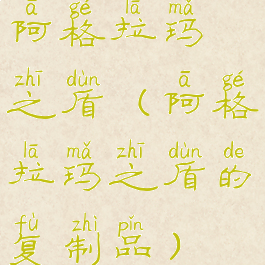 ā gé lā mǎ
阿格拉玛
zhī dùn ā gé
之盾（阿格
lā mǎ zhī dùn de
拉玛之盾的
fù zhì pǐn
复制品）